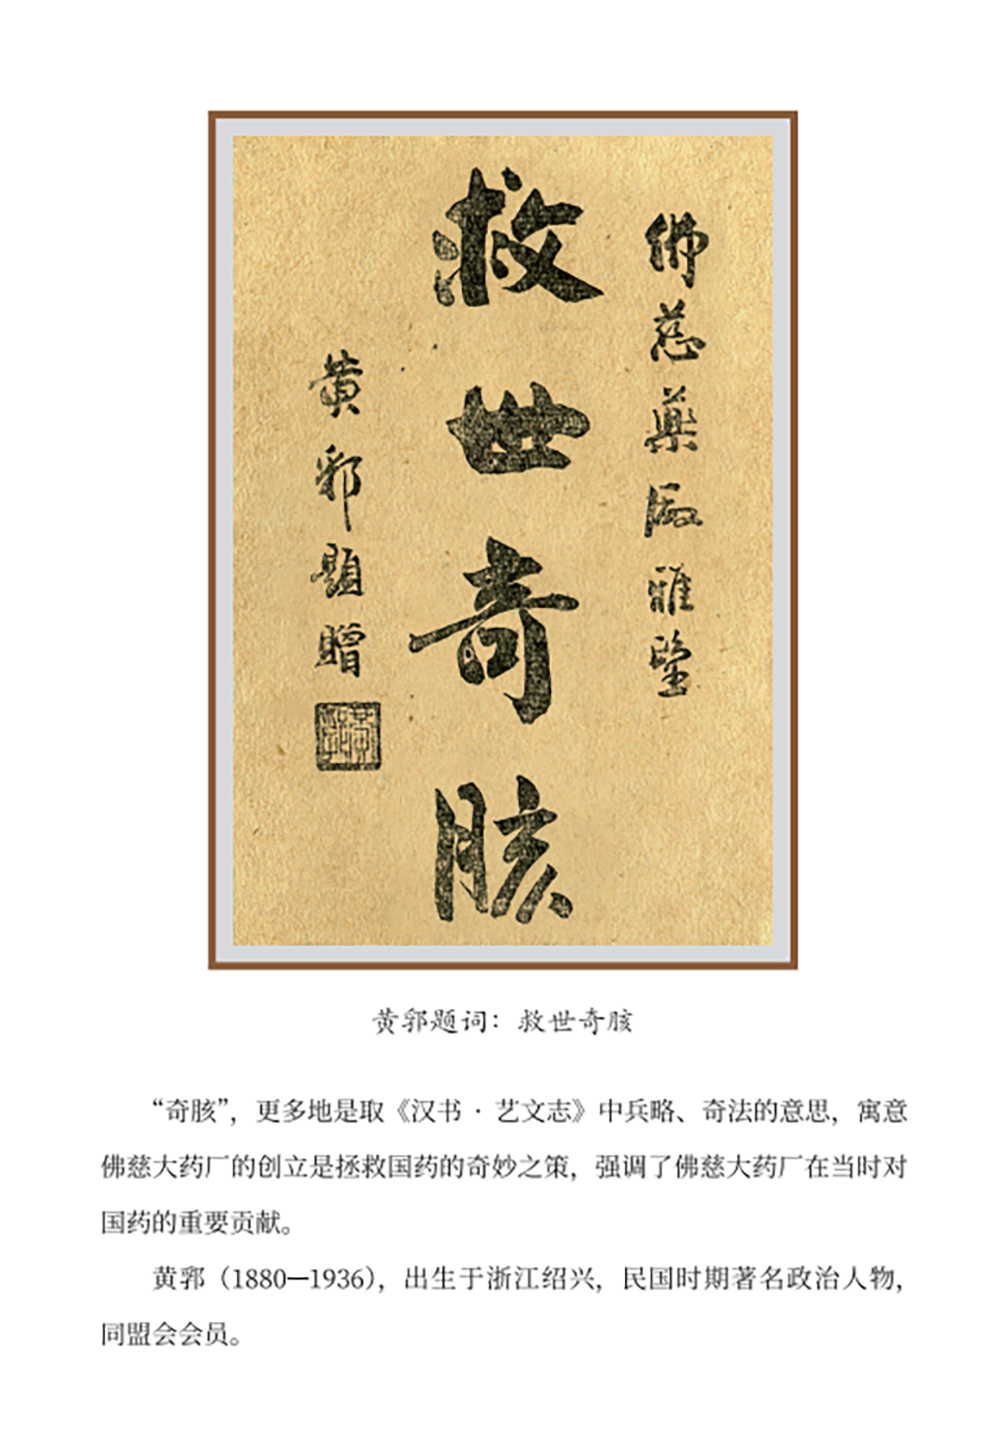 佛慈藥厰雅鑒
救世奇胲
黄郛題贈
黄郛题词：救世奇胲
“奇胲”，更多地是取《汉书·艺文志》中兵略、奇法的意思，寓意
佛慈大药厂的创立是拯救国药的奇妙之策，强调了佛慈大药厂在当时对
国药的重要贡献。
黄郛（1880—1936），出生于浙江绍兴，民国时期著名政治人物，
同盟会会员。